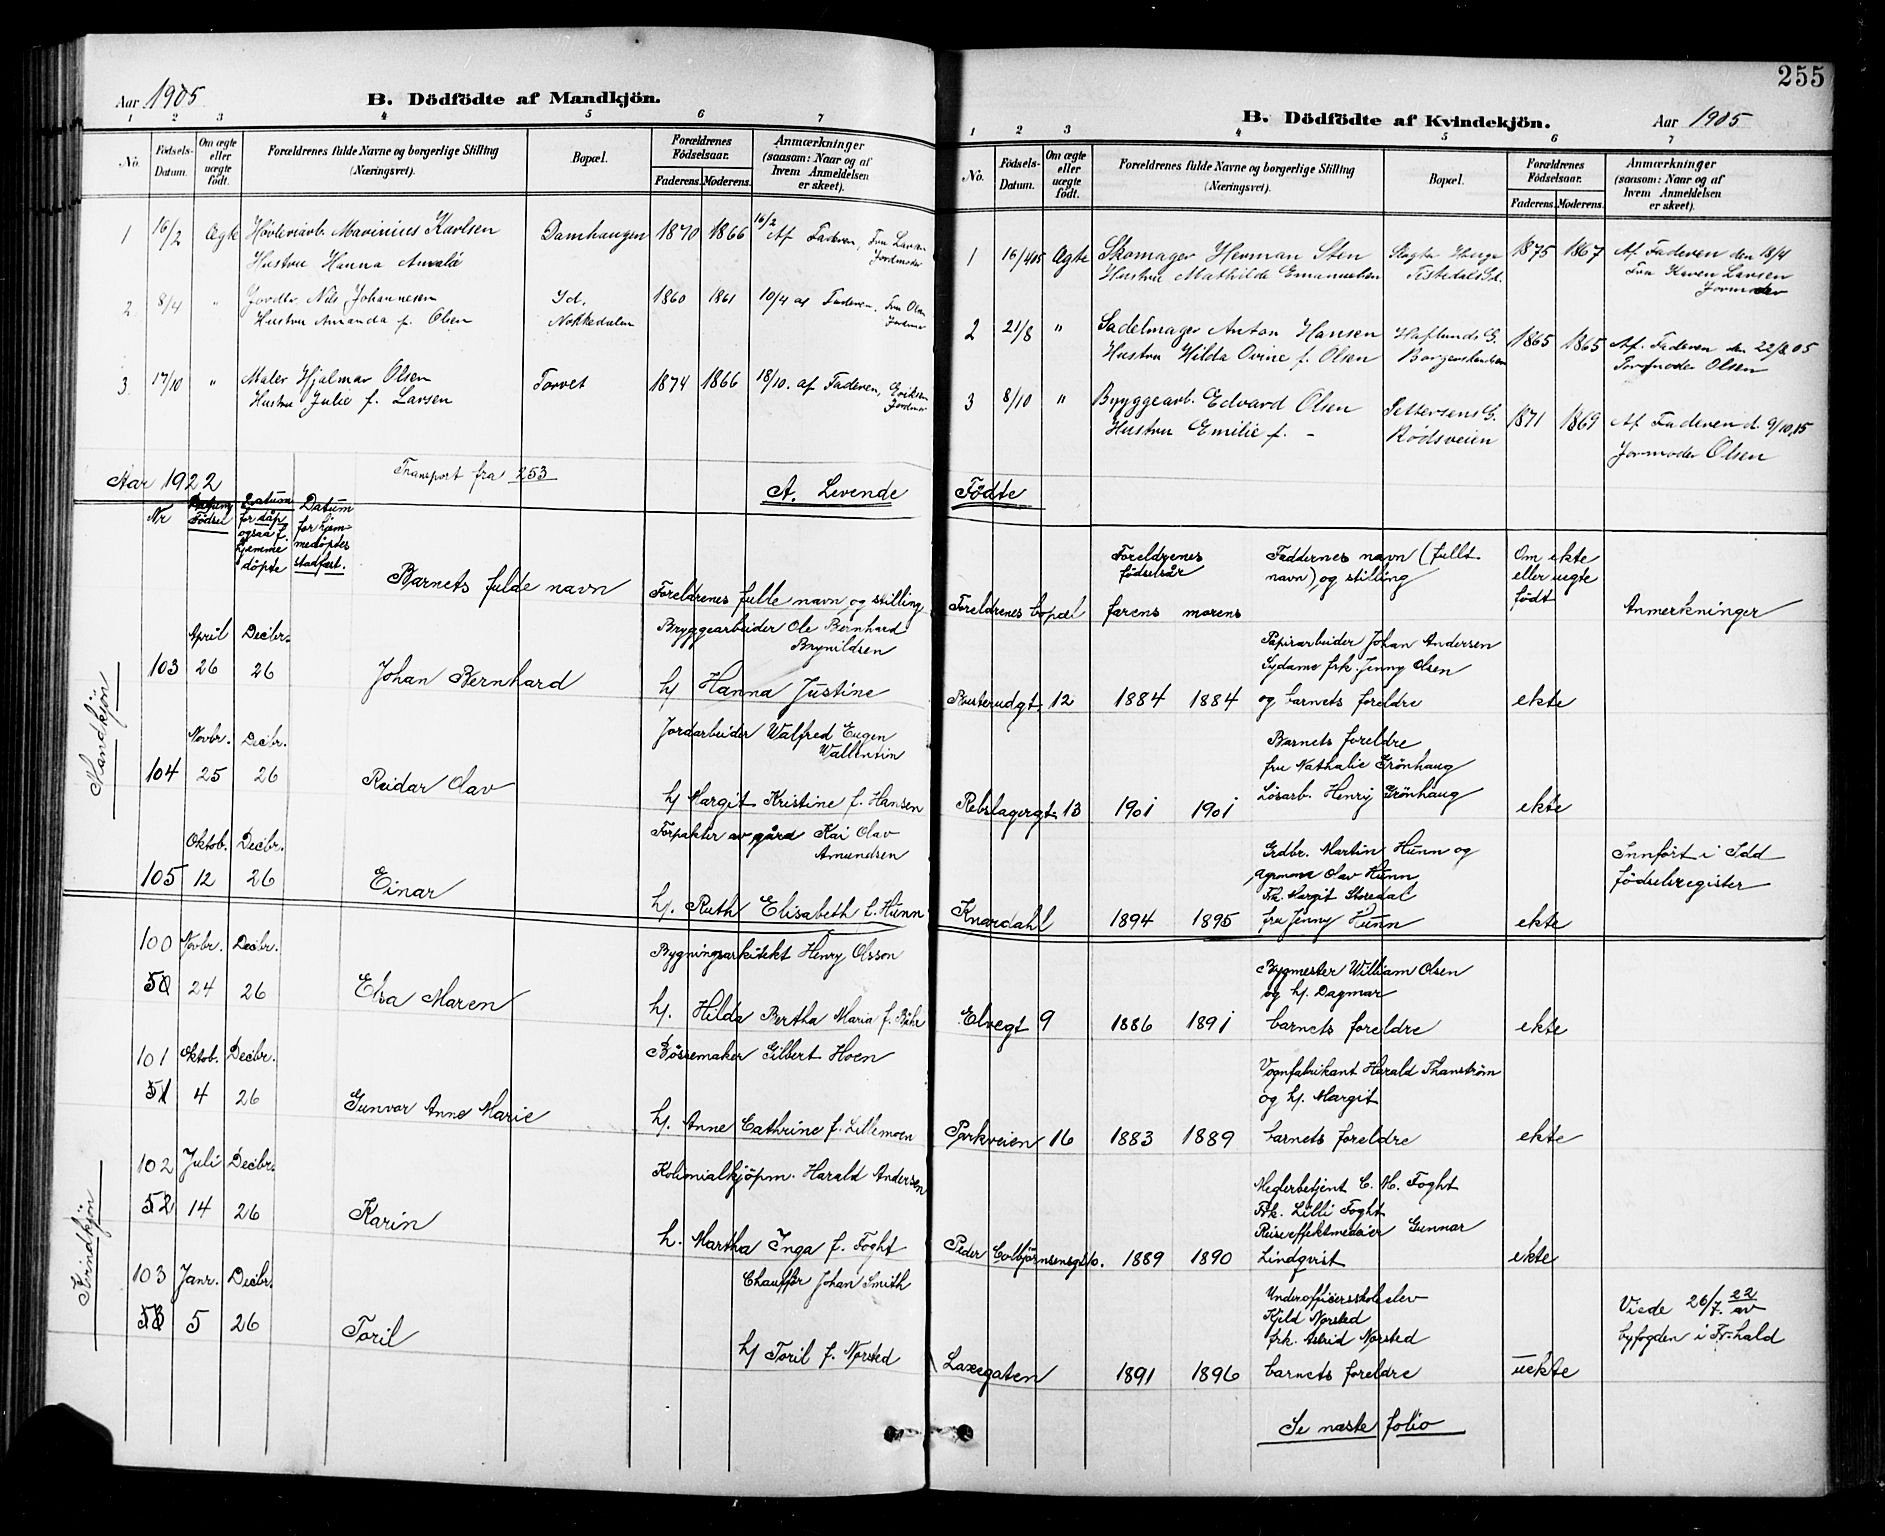 Aar 1905.
B. Dödfödte af Mandkjön.
1 2 3 4 5 6 7
No. Födsels-Datum. Om ægte eller uægte födt. Forældrenes fulde Navne og borgerlige Stilling (Næringsvei). Bopæl. Forældrenes Födselsaar. Faderens. Moderens. Anmærkninger (saasom: Naar og af hvem Anmeldelsen er skeet).
1 16/2 Ægte Høvleriarb. Marinius Karlsen Damhaugen 1870 1866 16/2 Af Faderen, Fru Larsen
Hustru Hanna Amalie Jordmoder
2 8/4 " Jordbr. Nils Johannesen Id. 1860 1861 10/4 af Faderen. Fru Olsen
Hustru Amanda f. Olsen Nokkedalen Jordmor
3 17/10 " Maler Hjalmar Olsen Torvet 1874 1866 18/10. af Faderen, Eriksen
Hustru Julie f. Larsen Jordmor
Aar 1922 Transport fra 253 A. Levende
Nr Födsel Datum for dåp ogsaa f. hjemme döpte Datum for hjemmedöptes stadfæst.
Barnets fulde navn
Foreldrenes fulle navn og stilling
Mandkjön
April Decbr. Bryggearbeider Ole Bernhard
Brynildsen
103 26 26 Johan Bernhard h/ Hanna Justine
Novbr. Decbr. Jordarbeider Walfred Eugen
Wallentin
104 25 26 Reidar Olav h/ Margit Kristine f. Hansen
Oktob. Decbr. Forpakter av gård Kai Olav
Amundsen
105 12 26 Einar h/. Ruth Elisabeth f. Hunn
Kvindkjön
100 Novbr. Decbr. Bygningsarkitekt Henry Olsson
50 24 26 Elsa Maren h/. Hilda Bertha Maria f.
101 Oktob. Decbr. Bössemaker Gilbert Hoen
51 4 26 Gunvor Anne Marie h/. Anne Cathrine f. Lillemoen
102 Juli Decbr. Kolonialkjöpm. Harald Andersen
52 14 26 Karin h. Martha Inga f. Foght
103 Janr. Decbr. Chaufför Johan Smith
53 5 26 Toril h/ Toril f. Norsted
255
B. Dödfödte af Kvindekjön. Aar 1905
1 2 3 4 5 6 7
No. Födsels-Datum. Om ægte eller uægte födt. Forældrenes fulde Navne og borgerlige Stilling (Næringsvei). Bopæl. Forældrenes Födselsaar. Faderens. Moderens. Anmærkninger (saasom: Naar og af hvem Anmeldelsen er skeet).
1 16/4 05 Ægte Skomager Herman Sten 1875 1867 Af Faderen den 18/4
Hustru Mathilde Emanuelsen Tistedalsgt. Fru Karen Larsen
Jormoder
2 21/8 " Sadelmager Anton Hansen Haflunds G. 1865 1865 Af. Faderen den 22/8 05
Hustru Hilda Ovine f. Olsen Jormoder Olsen
3 8/10 " Bryggearb. Edvard Olsen Pettersens G. 1871 1869 Af Faderen d. 9/10,15
Hustru Emilie f. - Rödsveien
Jormoder Olsen
Födte
Foreldrenes bopæl Foreldrenes födselsår farens morens
Faddernes navn (fullt navn) og stilling
Om ekte eller uegte födt
Anmerkninger
Papirarbeider Johan Andersen
Sydame frk. Jenny Olsen
Busterudgt. 12 1884 1884 og barnets foreldre ekte
Barnets foreldre
fru Nathalie Grönhaug
Rebslagergt. 13 1901 1901 Lösarb. Henry Grönhaug ekte
Grdbr. Martin Hunn og Innfört i Idd
Olav Hunn födselsregister
Frk. Margit Storedal
Knardahl 1894 1895 fru Jenny Hunn ekte
Bygmester William Olsen
og h/. Dagmar
Elvegt 9 1886 1891 barnets foreldre ekte
Vognfabrikant Harald Thanström
og h/. Margit
Parkveien 16 1883 1889 barnets foreldre ekte
Meglerbetjent C. M. Foght
Frk. Lilli Foght
Gunnar
Peder Colbjörnsensgt 10. 1889 1890 Lindqvist ekte
Underofficersskoleelev Viede 26/7. 22 av
Kjeld Norsted byfogden i Fr.hald
frk. Astrid Norsted
Laxegaten 1891 1896 barnets foreldre uekte
Se næste folio